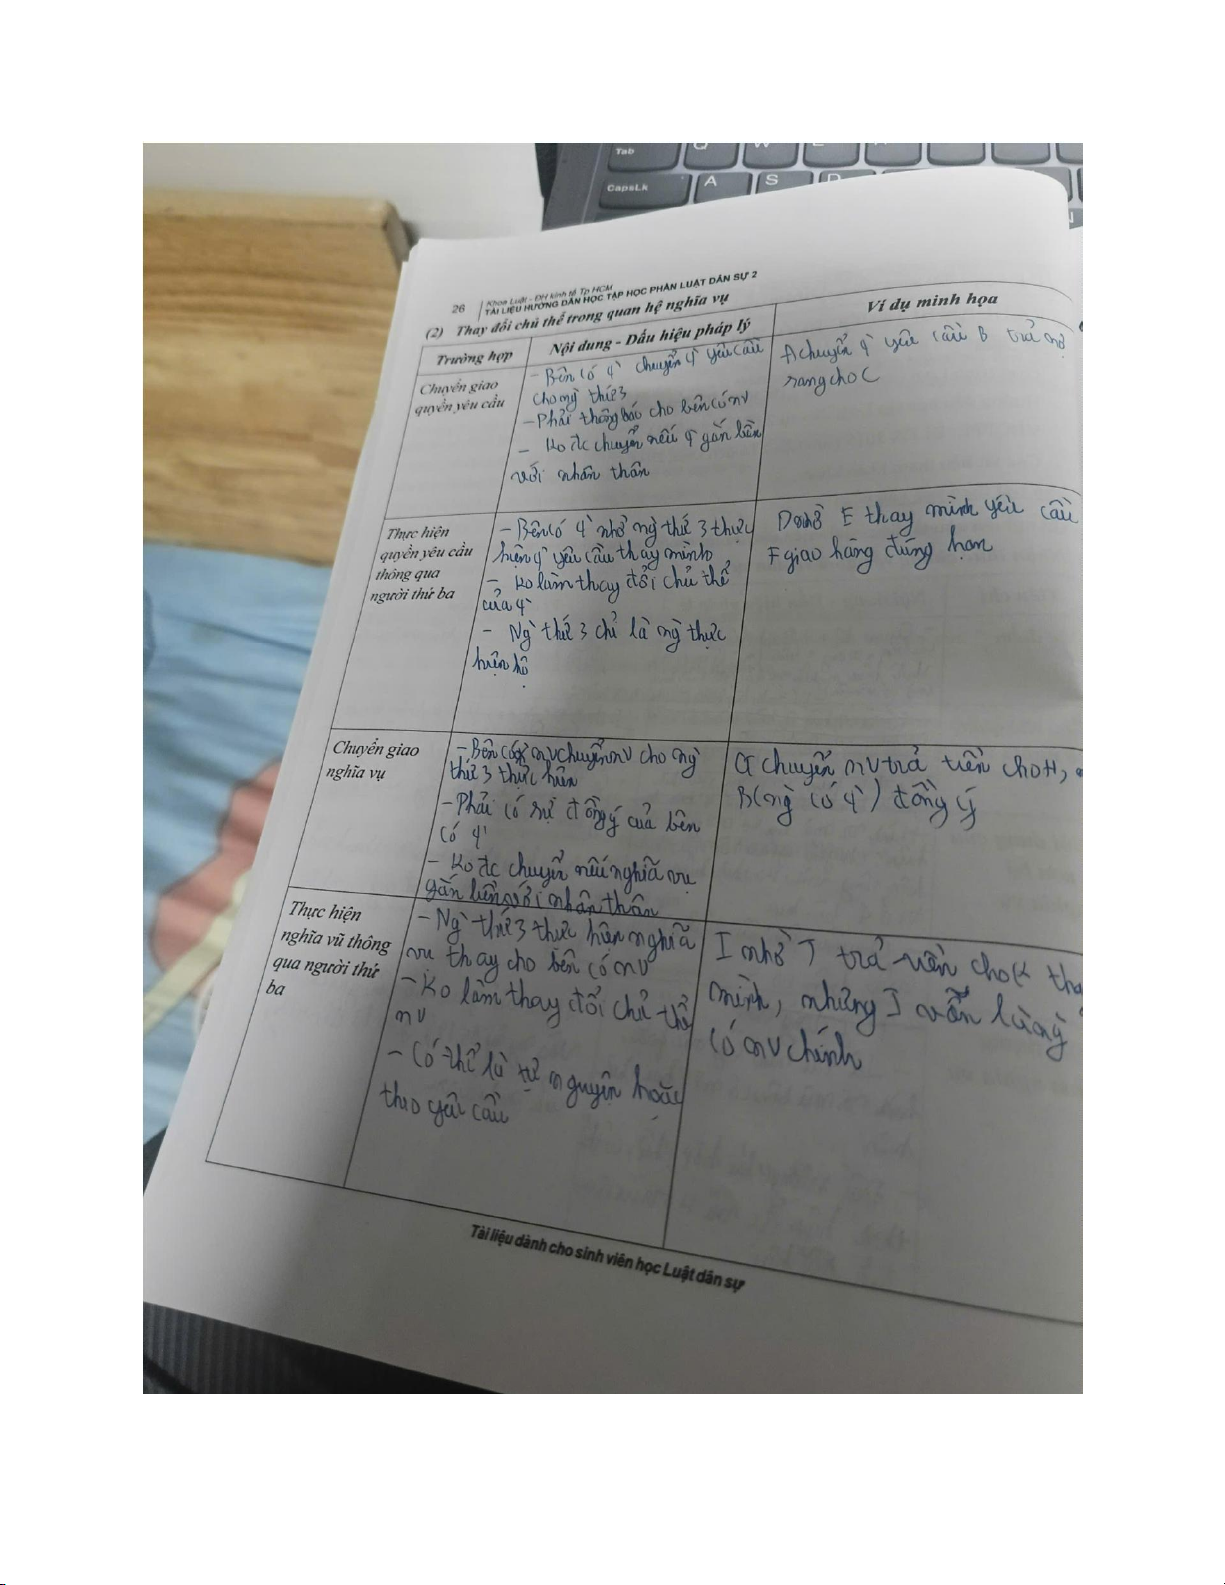 Tab
Q
W
CapsLk
A
S
D
26
Khoa Luật - ĐH kinh tế Tp HCM
TÀI LIỆU HƯỚNG DẪN HỌC TẬP HỌC PHẦN LUẬT DÂN SỰ 2
(2) Thay đổi chủ thể trong quan hệ nghĩa vụ
Trường hợp
Nội dung - Dấu hiệu pháp lý
Ví dụ minh họa
Chuyển giao
quyền yêu cầu
- Bên có q` chuyển q` yêu cầu
cho ng` thứ 3
- Phải thông báo cho bên có nv
- Ko đc chuyển nếu q` gắn liền
với nhân thân
A chuyển q` yêu cầu B trả nợ
sang cho C
Thực hiện
quyền yêu cầu
thông qua
người thứ ba
- Bên có q` nhờ ng` thứ 3 thực
hiện q` yêu cầu thay mình
- Ko làm thay đổi chủ thể
của q`
- Ng` thứ 3 chỉ là ng` thực
hiện hộ
D nhờ E thay mình yêu cầu
F giao hàng đúng hạn
Chuyển giao
nghĩa vụ
- Bên có nv chuyển nv cho ng`
thứ 3 thực hiện
- Phải có sự đồng ý của bên
có q`
- Ko đc chuyển nếu nghĩa vụ
gắn liền với nhân thân
G chuyển nv trả tiền cho H,
B (ng` có q`) đồng ý
Thực hiện
nghĩa vũ thông
qua người thứ
ba
- Ng` thứ 3 thực hiện nghĩa
vụ thay cho bên có nv
- Ko làm thay đổi chủ thể
nv
- Có thể là tự nguyện hoặc
theo yêu cầu
I nhờ J trả tiền cho K
mình, nhưng I vẫn là ng`
có nv chính
Tài liệu dành cho sinh viên học Luật dân sự